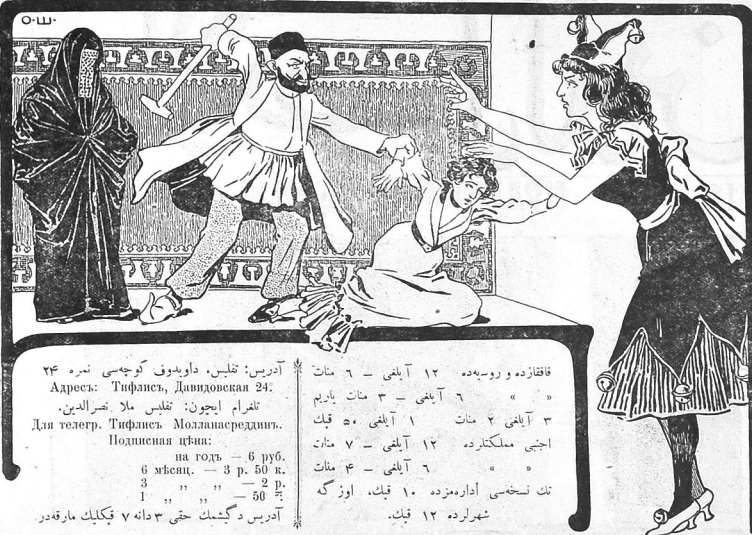 О.Ш.
آدریس: تفلیس، داویدوف کوچه‌سی نمره ۲۴
Адресъ: Тифлисъ, Давидовская 24.
تلغرام ایچون: تفلیس ملا نصرالدین.
Для телегр. Тифлисъ Молланасреддинъ.
Подписная цѣна:
на годъ — 6 руб.
6 мѣсяц. — 3 р. 50 к.
3 ,, ,, — 2 р.
1 ,, ,, — 50 к.
آدریس دگیشمك حقی ۳ دانه ۷ قپكلیك مارقه‌در.
قافقازده و روسیه‌ده ۱۲ آیلغی – ۶ منات
« » ۶ آیلغی – ۳ منات یاریم
۳ آیلغی ۲ منات ۱ آیلغی ۵۰ قپك
اجنبی مملكتلرده ۱۲ آیلغی – ۷ منات
« » ۶ آیلغی – ۴ منات
تك نسخه‌سی اداره‌مزده ۱۰ قپك، اوزگه
شهرلرده ۱۲ قپك.